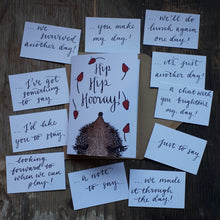 ... we survived another day!
... you make my day!
... we'll do lunch again one day!
... I've got something to say...
Hip Hip Hooray!
... it's just another day!
... a chat with you brightens my day!
... I'd like you to stay.
... Just to say...
... looking forward to when we can play!
... a note to say...
... we made it through the day!